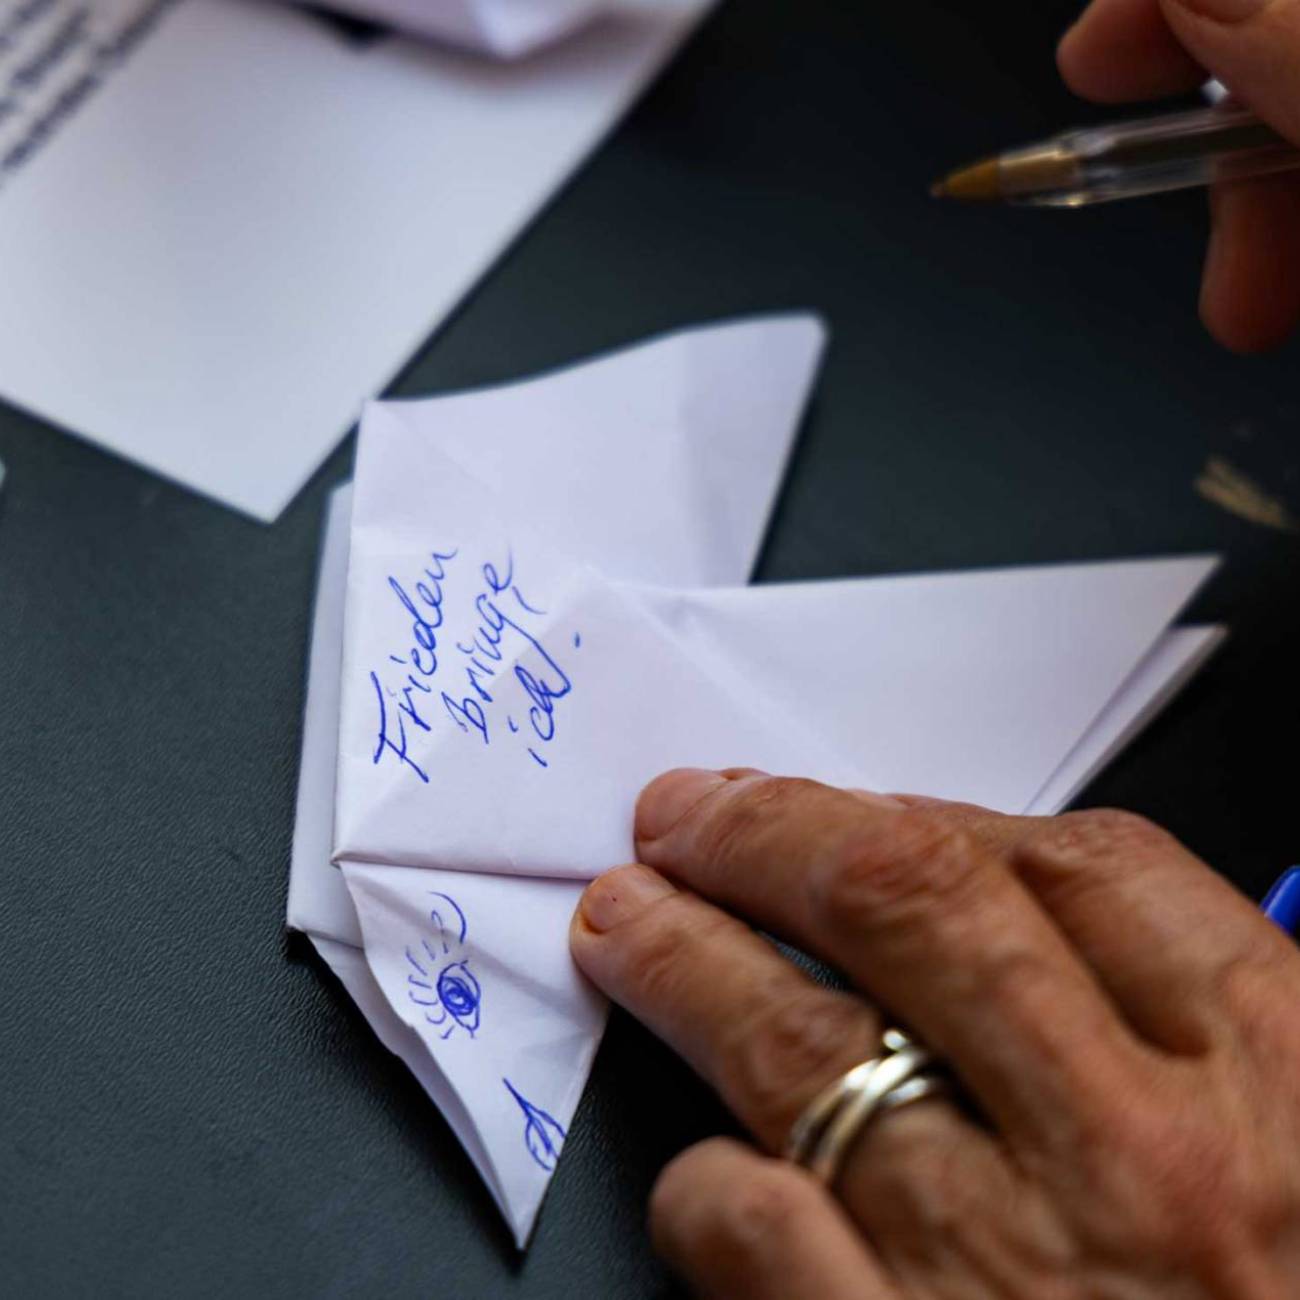 Frieden
Bringe
ich.